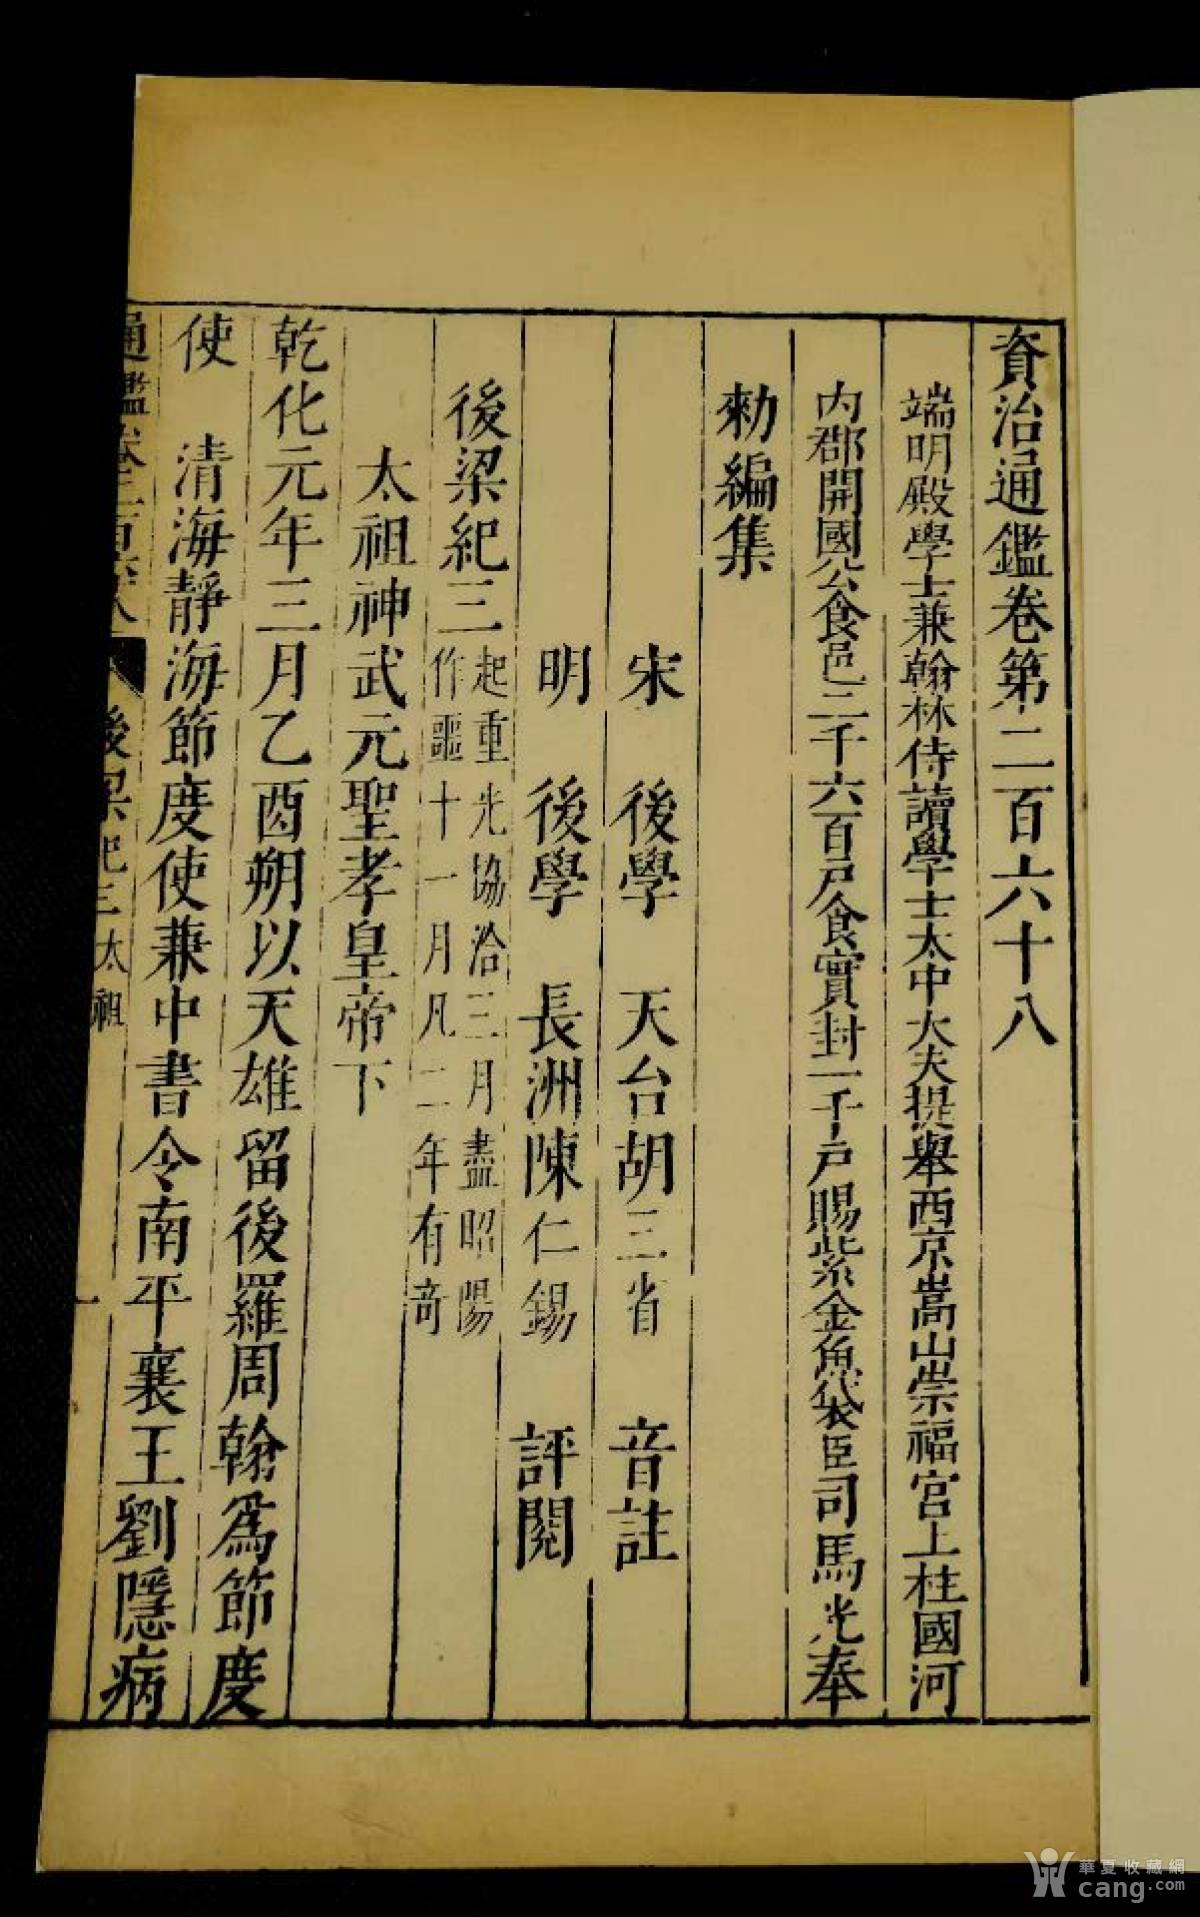 資治通鑑卷第二百六十八
端明殿學士兼翰林侍讀學士太中大夫提舉西京嵩山崇福宮上柱國河
內郡開國公食邑二千六百戶食實封一千戶賜紫金魚袋臣司馬光奉
勑編集
宋 後學 天台胡三省 音註
明 後學 長洲陳仁錫 評閱
後梁紀三 起重光協洽三月盡昭陽
作噩十一月凡二年有奇
太祖神武元聖孝皇帝下
乾化元年三月乙酉朔以天雄留後羅周翰爲節度
使 清海靜海節度使兼中書令南平襄王劉隱病
通鑑卷二百六十八 後梁紀三 太祖 一
華夏收藏網
cang.com